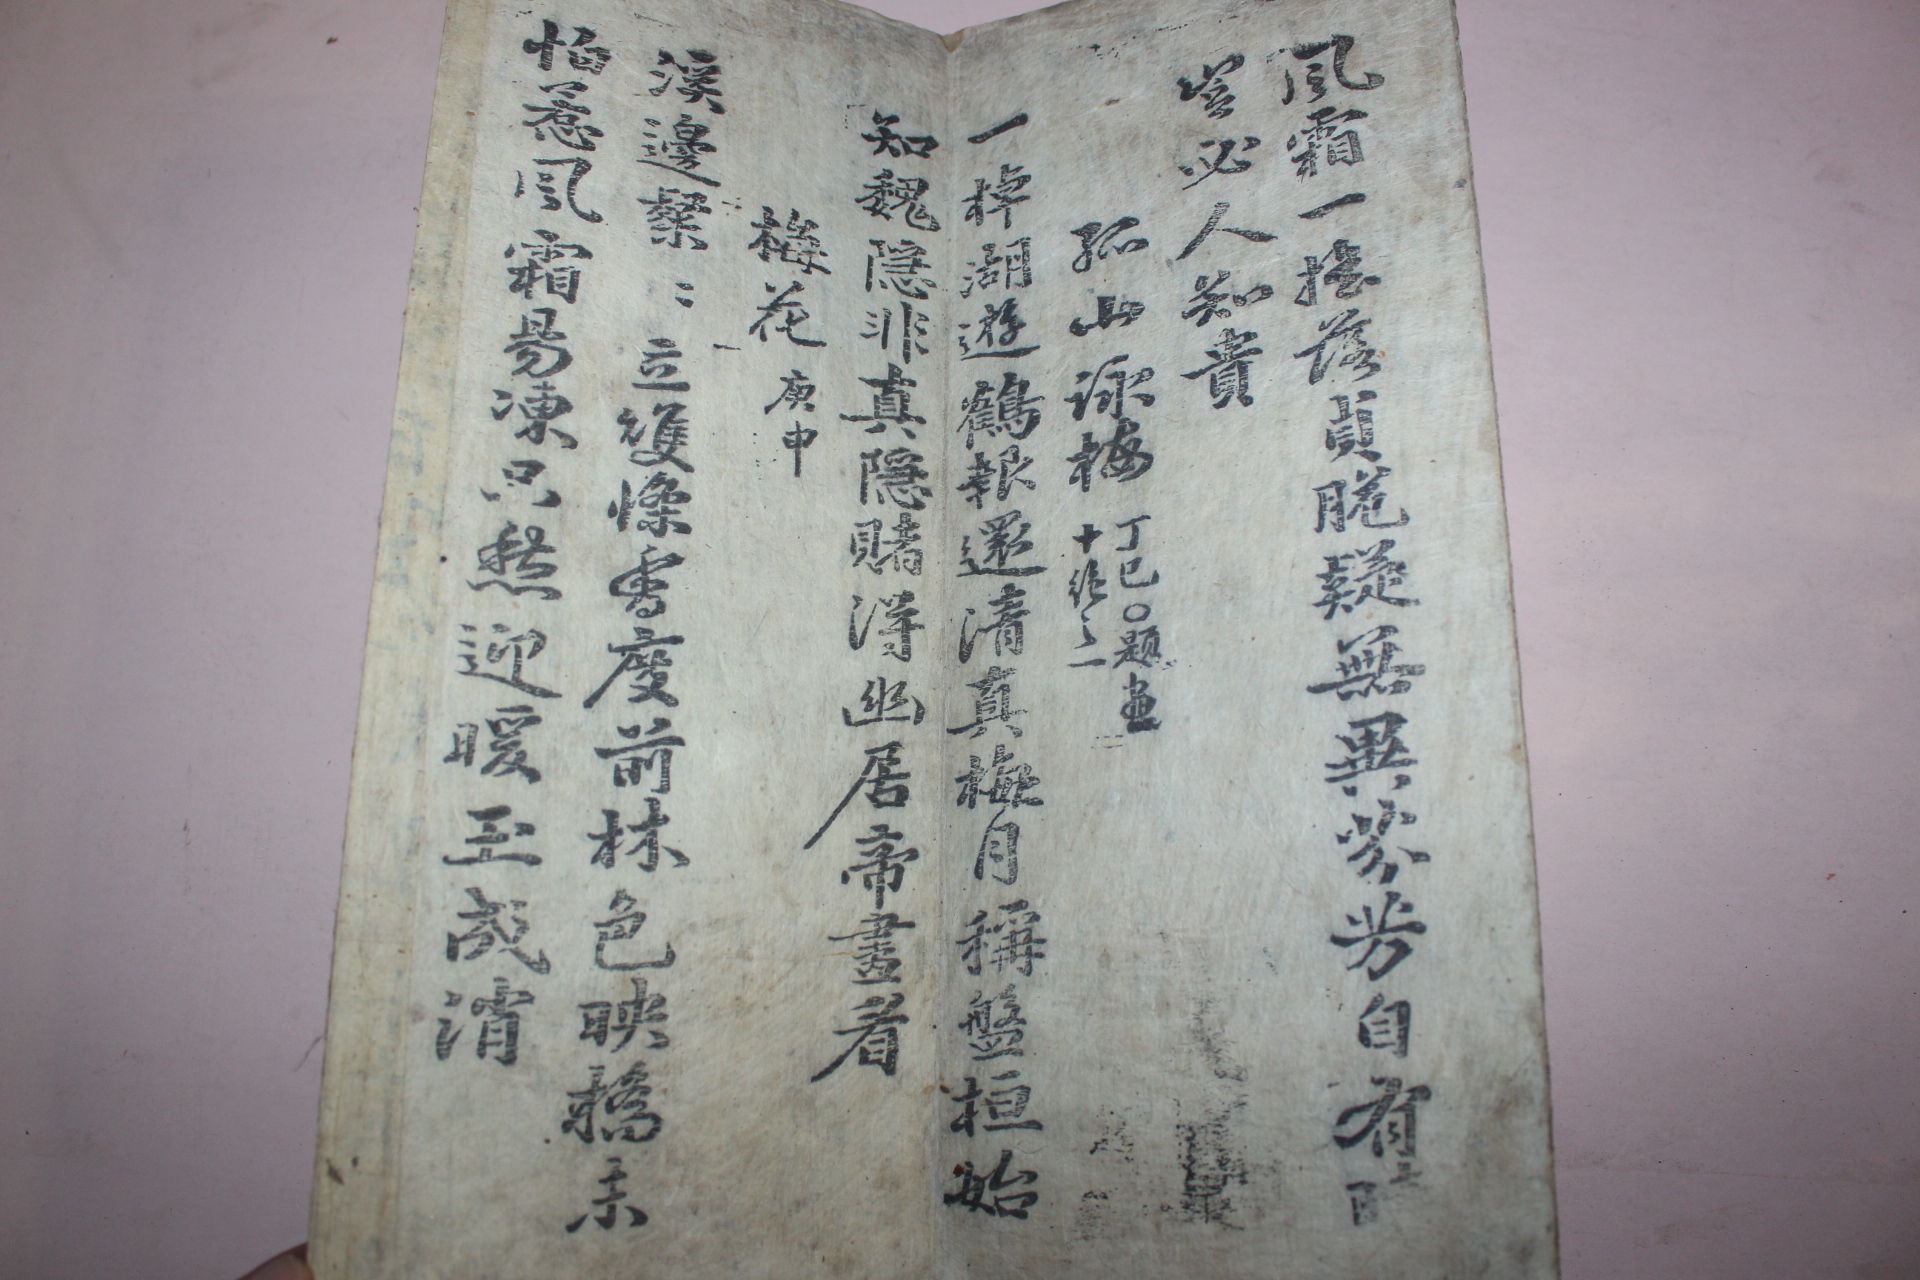 風霜一搖落貞脆疑無異芬芳自有
豈必人知貴
孤山詠梅 丁巳○題畫十絶之二
一棹湖遊鶴報還清真梅月稱盤桓始
知魏隱非真隱賭得幽居帝畫看
梅花 庚申
溪邊粲〻立雙條香度前林色映橋未
怕惹風霜易凍只愁迎暖玉成消